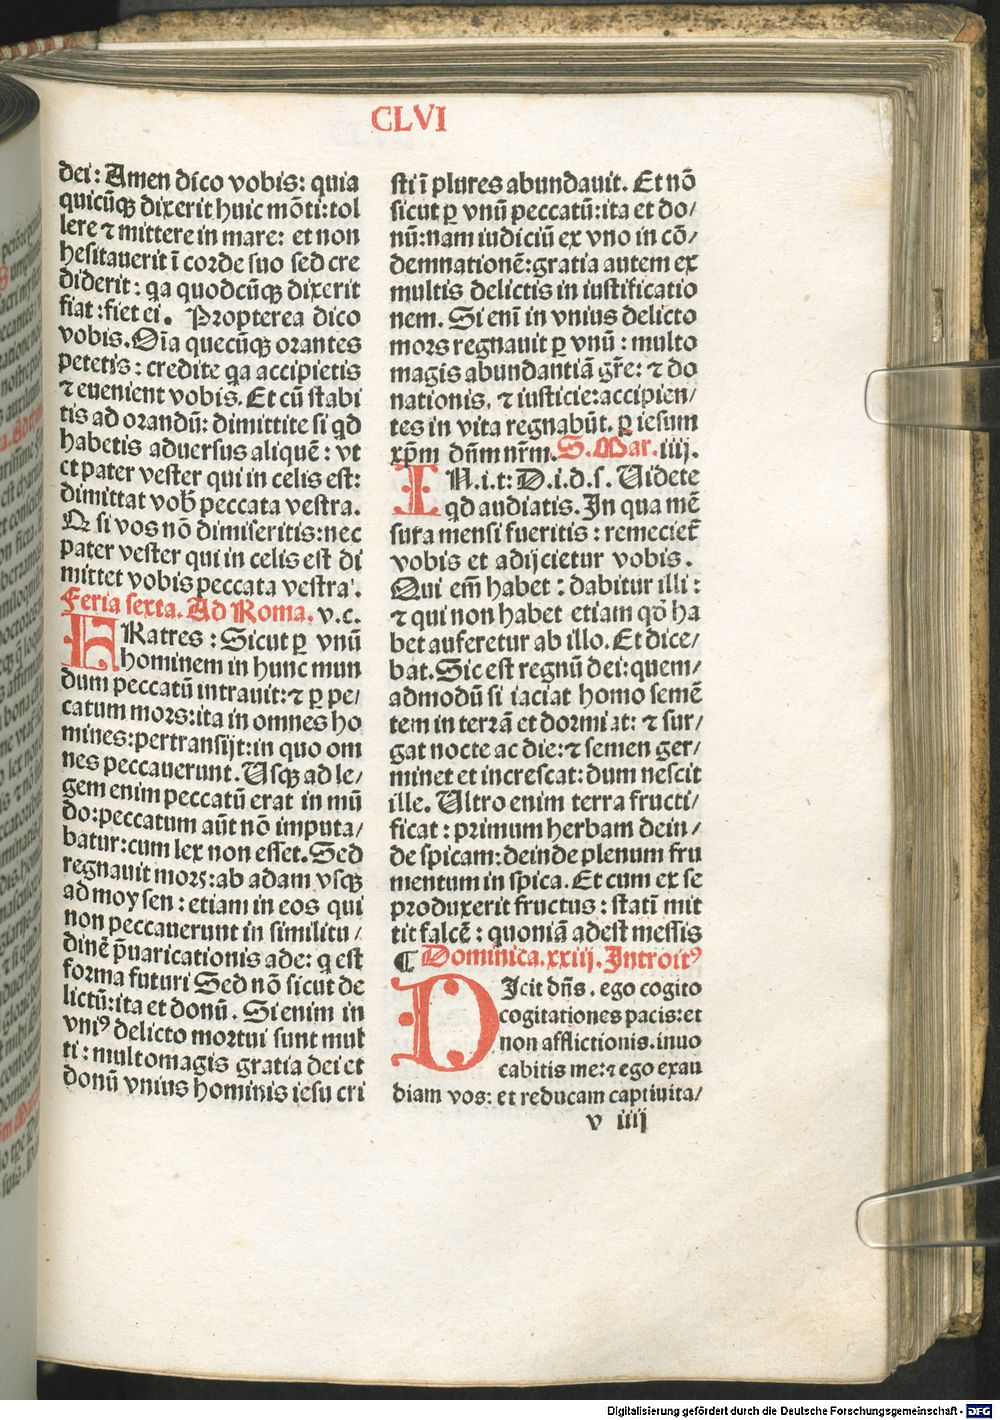 CLVI
dei: Amen dico vobis: quia
quicũqꝫ dixerit huic mõti: tol
lere ⁊ mittere in mare: et non
hesitauerit ĩ corde suo sed cre
diderit: qa quodcũqꝫ dixerit
fiat: fiet ei. Propterea dico
vobis. Oĩa quecũqꝫ orantes
petetis: credite qa accipietis
⁊ euenient vobis. Et cũ stabi
tis ad orandũ: dimittite si qd
habetis aduersus aliquẽ: vt
et pater vester qui in celis est:
dimittat vob̃ peccata vestra.
Q si vos nõ dimiseritis: nec
pater vester qui in celis est di
mittet vobis peccata vestra.
Feria sexta. Ad Roma. v.c.
FRatres: Sicut ꝑ vnũ
hominem in hunc mun
dum peccatũ intrauit: ⁊ ꝑ pe/
catum mors: ita in omnes ho
mines: pertransijt: in quo om
nes peccauerunt. Usqꝫ ad le/
gem enim peccatũ erat in mũ
do: peccatum aũt nõ imputa/
batur: cum lex non esset. Sed
regnauit mors: ab adam vsqꝫ
ad moysen: etiam in eos qui
non peccauerunt in similitu/
dinẽ p̃uaricationis ade: q est
forma futuri Sed nõ sicut de
lictũ: ita et donũ. Si enim in
vniꝰ delicto mortui sunt mul
ti: multomagis gratia dei et
donũ vnius hominis iesu cri
sti ĩ plures abundauit. Et nõ
sicut ꝑ vnũ peccatũ: ita et do/
nũ: nam iudiciũ ex vno in cõ/
demnationẽ: gratia autem ex
multis delictis in iustificatio
nem. Si enĩ in vnius delicto
mors regnauit ꝑ vnũ: multo
magis abundantiã gr̃e: ⁊ do
nationis, ⁊ iusticie: accipien/
tes in vita regnabũt. ꝑ iesum
xp̃m dñm nr̃m. S. Mar. iiij.
IN.i.t: D.i.d.s. Uidete
qd audiatis. In qua mẽ
sura mensi fueritis: remeciet̃
vobis et adijcietur vobis.
Qui em̃ habet: dabitur illi:
⁊ qui non habet etiam qd̃ ha
bet auferetur ab illo. Et dice/
bat. Sic est regnũ dei: quem/
admodũ si iaciat homo semẽ
tem in terrã et dormiat: ⁊ sur/
gat nocte ac die: ⁊ semen ger/
minet et increscat: dum nescit
ille. Ultro enim terra fructi/
ficat: primum herbam dein/
de spicam: deinde plenum fru
mentum in spica. Et cum ex se
produxerit fructus: statĩ mit
tit falcẽ: quoniã adest messis
¶ Dominica. xxiij. Introitꝰ
DIcit dñs. ego cogito
cogitationes pacis: et
non afflictionis. inuo
cabitis me: ⁊ ego exau
diam vos: et reducam captiuita/
v iiij
Digitalisierung gefördert durch die Deutsche Forschungsgemeinschaft - DFG